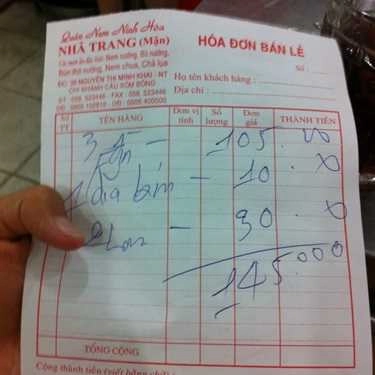 Quán Nem Ninh Hòa
NHÃ TRANG (Mận)
HÓA ĐƠN BÁN LẺ
Số
Họ tên khách hàng :
Địa chỉ :
ĐC: 39 NGUYỄN THỊ MINH KHAI - NT
ĐT: 058 523446 - FAX: 058 523446
Số TT TÊN HÀNG Đơn vị tính Số lượng Đơn giá THÀNH TIỀN
3 - 105.
1 Dĩa bún - 10.
2 Lon - 30.
145.000
TỔNG CỘNG
Cộng thành tiền (viết bằng chữ)